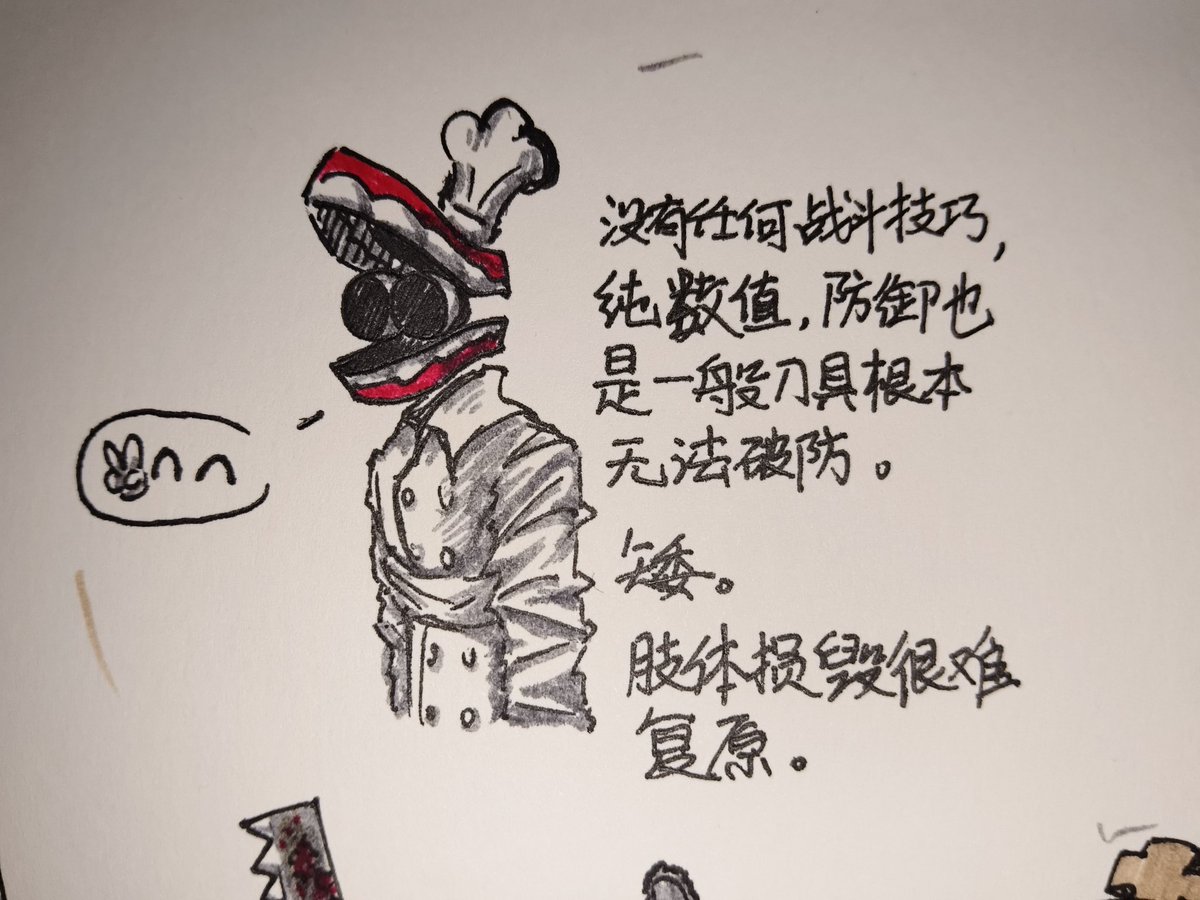 没有任何战斗技巧,
纯数值,防御也
是一般刀具根本
无法破防。
矮。
肢体损毁很难
复原。